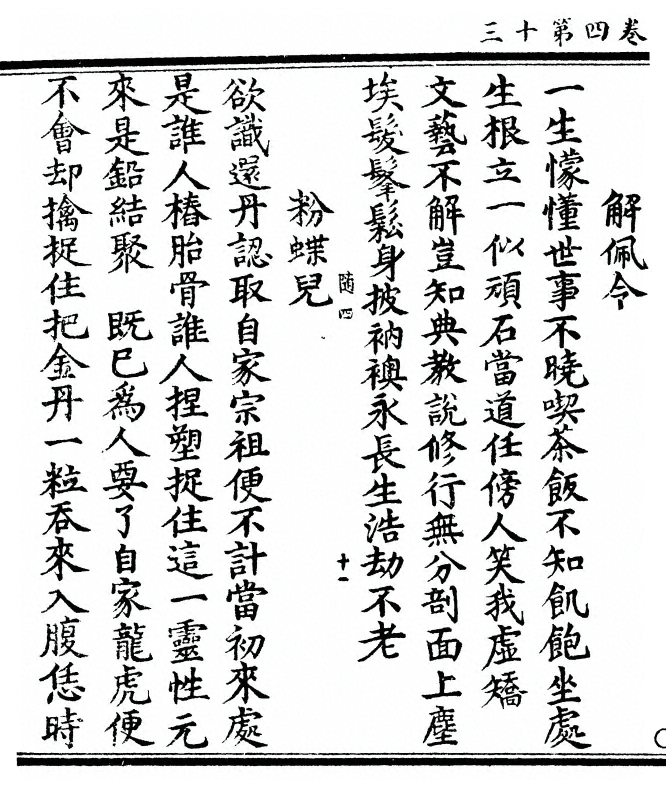 三十第四卷
解佩令
一生懞懂世事不曉喫茶飯不知飢飽坐處
生根立一似頑石當道任傍人笑我虛矯
文藝不解豈知典教說修行無分剖面上塵
埃髮髼鬆身披衲襖永長生浩劫不老
随四
十一
粉蝶兒
欲識還丹認取自家宗祖便不計當初來處
是誰人樁胎骨誰人捏塑捉住這一靈性元
來是鉛結聚　既已為人要了自家龍虎便
不會却擒捉住把金丹一粒吞來入腹恁時